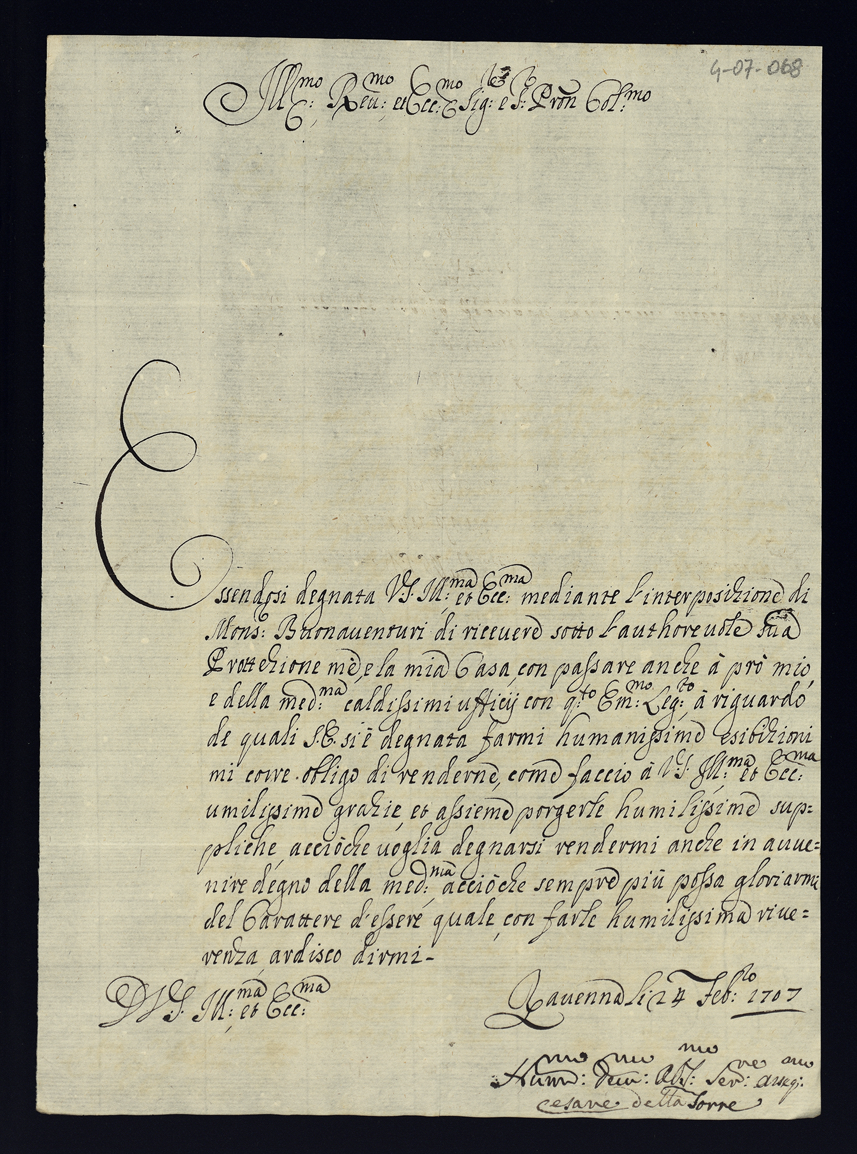 4-07-068
Ill:mo Reu:mo et Ecc:mo Sig:re e P:ron Prōn Col:mo
Essendosi degnata V.S. Ill:ma et Ecc:ma mediante l'interposizione di
Mons: Buonauenturi di riceuere sotto l'authoreuole sua
Prottezione me, e la mia Casa, con passare anche à prò mio,
e della med:ma caldissimi ufficij con q:to Em:mo Leg:to à riguardo
de quali S.E. si è degnata farmi humanissime esibizioni
mi corre obligo di renderne, come faccio à V.S. Ill:ma et Ecc:ma
umilissime grazie, et assieme porgerle humilissime sup=
pliche, acciòche uoglia degnarsi rendermi anche in auue=
nire degno della med:ma acciòche sempre più possa gloriarmi
del Carattere d'essere, quale, con farle humilissima riue=
renza, ardisco dirmi-
D V.S. Ill:ma et Ecc:ma
Rauenna li 24 Feb:ro 1707
Humm:mo Deu:mo Obl:mo Ser:re osseq:mo
Cesare della Torre